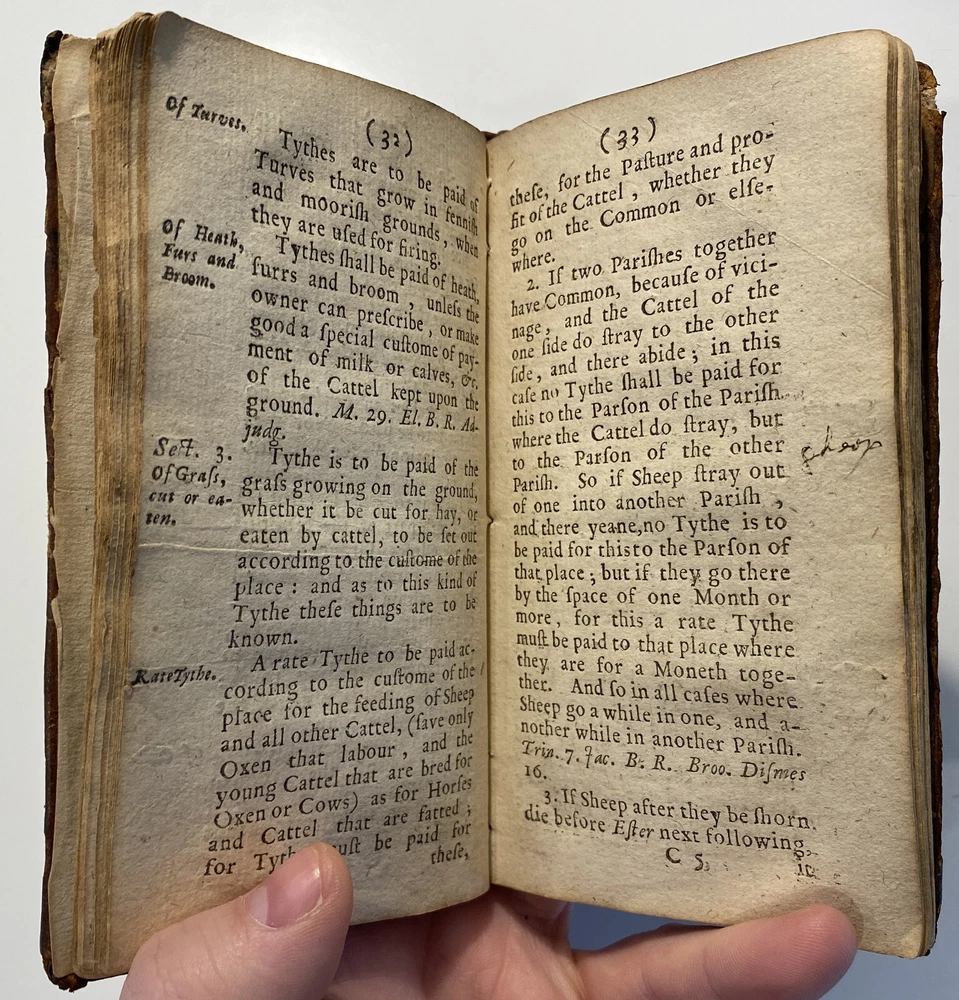 (32)
Of Turves.
Tythes are to be paid of
Turves that grow in fennish
and moorish grounds, when
they are uſed for firing.
Of Heath,
Furs and
Broom.
Tythes ſhall be paid of heath,
furrs and broom, unleſs the
owner can preſcribe, or make
good a ſpecial cuſtome of pay-
ment of milk or calves, &c.
of the Cattel kept upon the
ground. M. 29. El. B. R. Ad-
judg.
Sect. 3.
Of Graſs,
cut or ea-
ten.
Tythe is to be paid of the
graſs growing on the ground,
whether it be cut for hay, or
eaten by cattel, to be ſet out
according to the cuſtome of the
place : and as to this kind of
Tythe theſe things are to be
known.
Rate Tythe.
A rate Tythe to be paid ac-
cording to the cuſtome of the
place for the feeding of Sheep
and all other Cattel, (ſave only
Oxen that labour, and the
young Cattel that are bred for
Oxen or Cows) as for Horſes
and Cattel that are fatted ;
for be paid for
theſe,
(33)
theſe, for the Paſture and pro-
fit of the Cattel, whether they
go on the Common or elſe-
where.
2. If two Pariſhes together
have Common, becauſe of vici-
nage, and the Cattel of the
one ſide do ſtray to the other
ſide, and there abide ; in this
caſe no Tythe ſhall be paid for
this to the Parſon of the Pariſh
where the Cattel do ſtray, but
to the Parſon of the other
Pariſh. So if Sheep ſtray out
of one into another Pariſh,
and there yeane, no Tythe is to
be paid for this to the Parſon of
that place ; but if they go there
by the ſpace of one Month or
more, for this a rate Tythe
muſt be paid to that place where
they are for a Moneth toge-
ther. And ſo in all caſes where
Sheep go a while in one, and a-
nother while in another Pariſh.
Trin. 7. Jac. B. R. Broo. Diſmes
16.
3. If Sheep after they be ſhorn
die before Eſter next following,
C 5
in
sheep